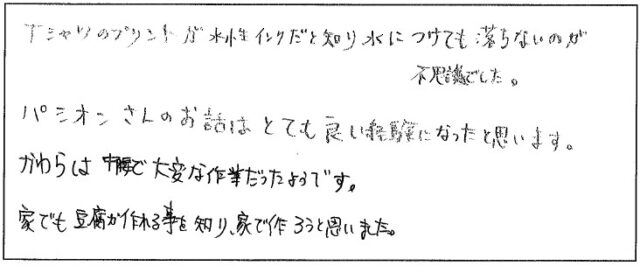 Tシャツのプリントが水性インクだと知り水につけても落ちないのが
不思議でした。
パシオンさんのお話はとても良い経験になったと思います。
かわらは中腰で大変な作業だったようです。
家でも豆腐が作れる事を知り、家で作ろうと思いました。